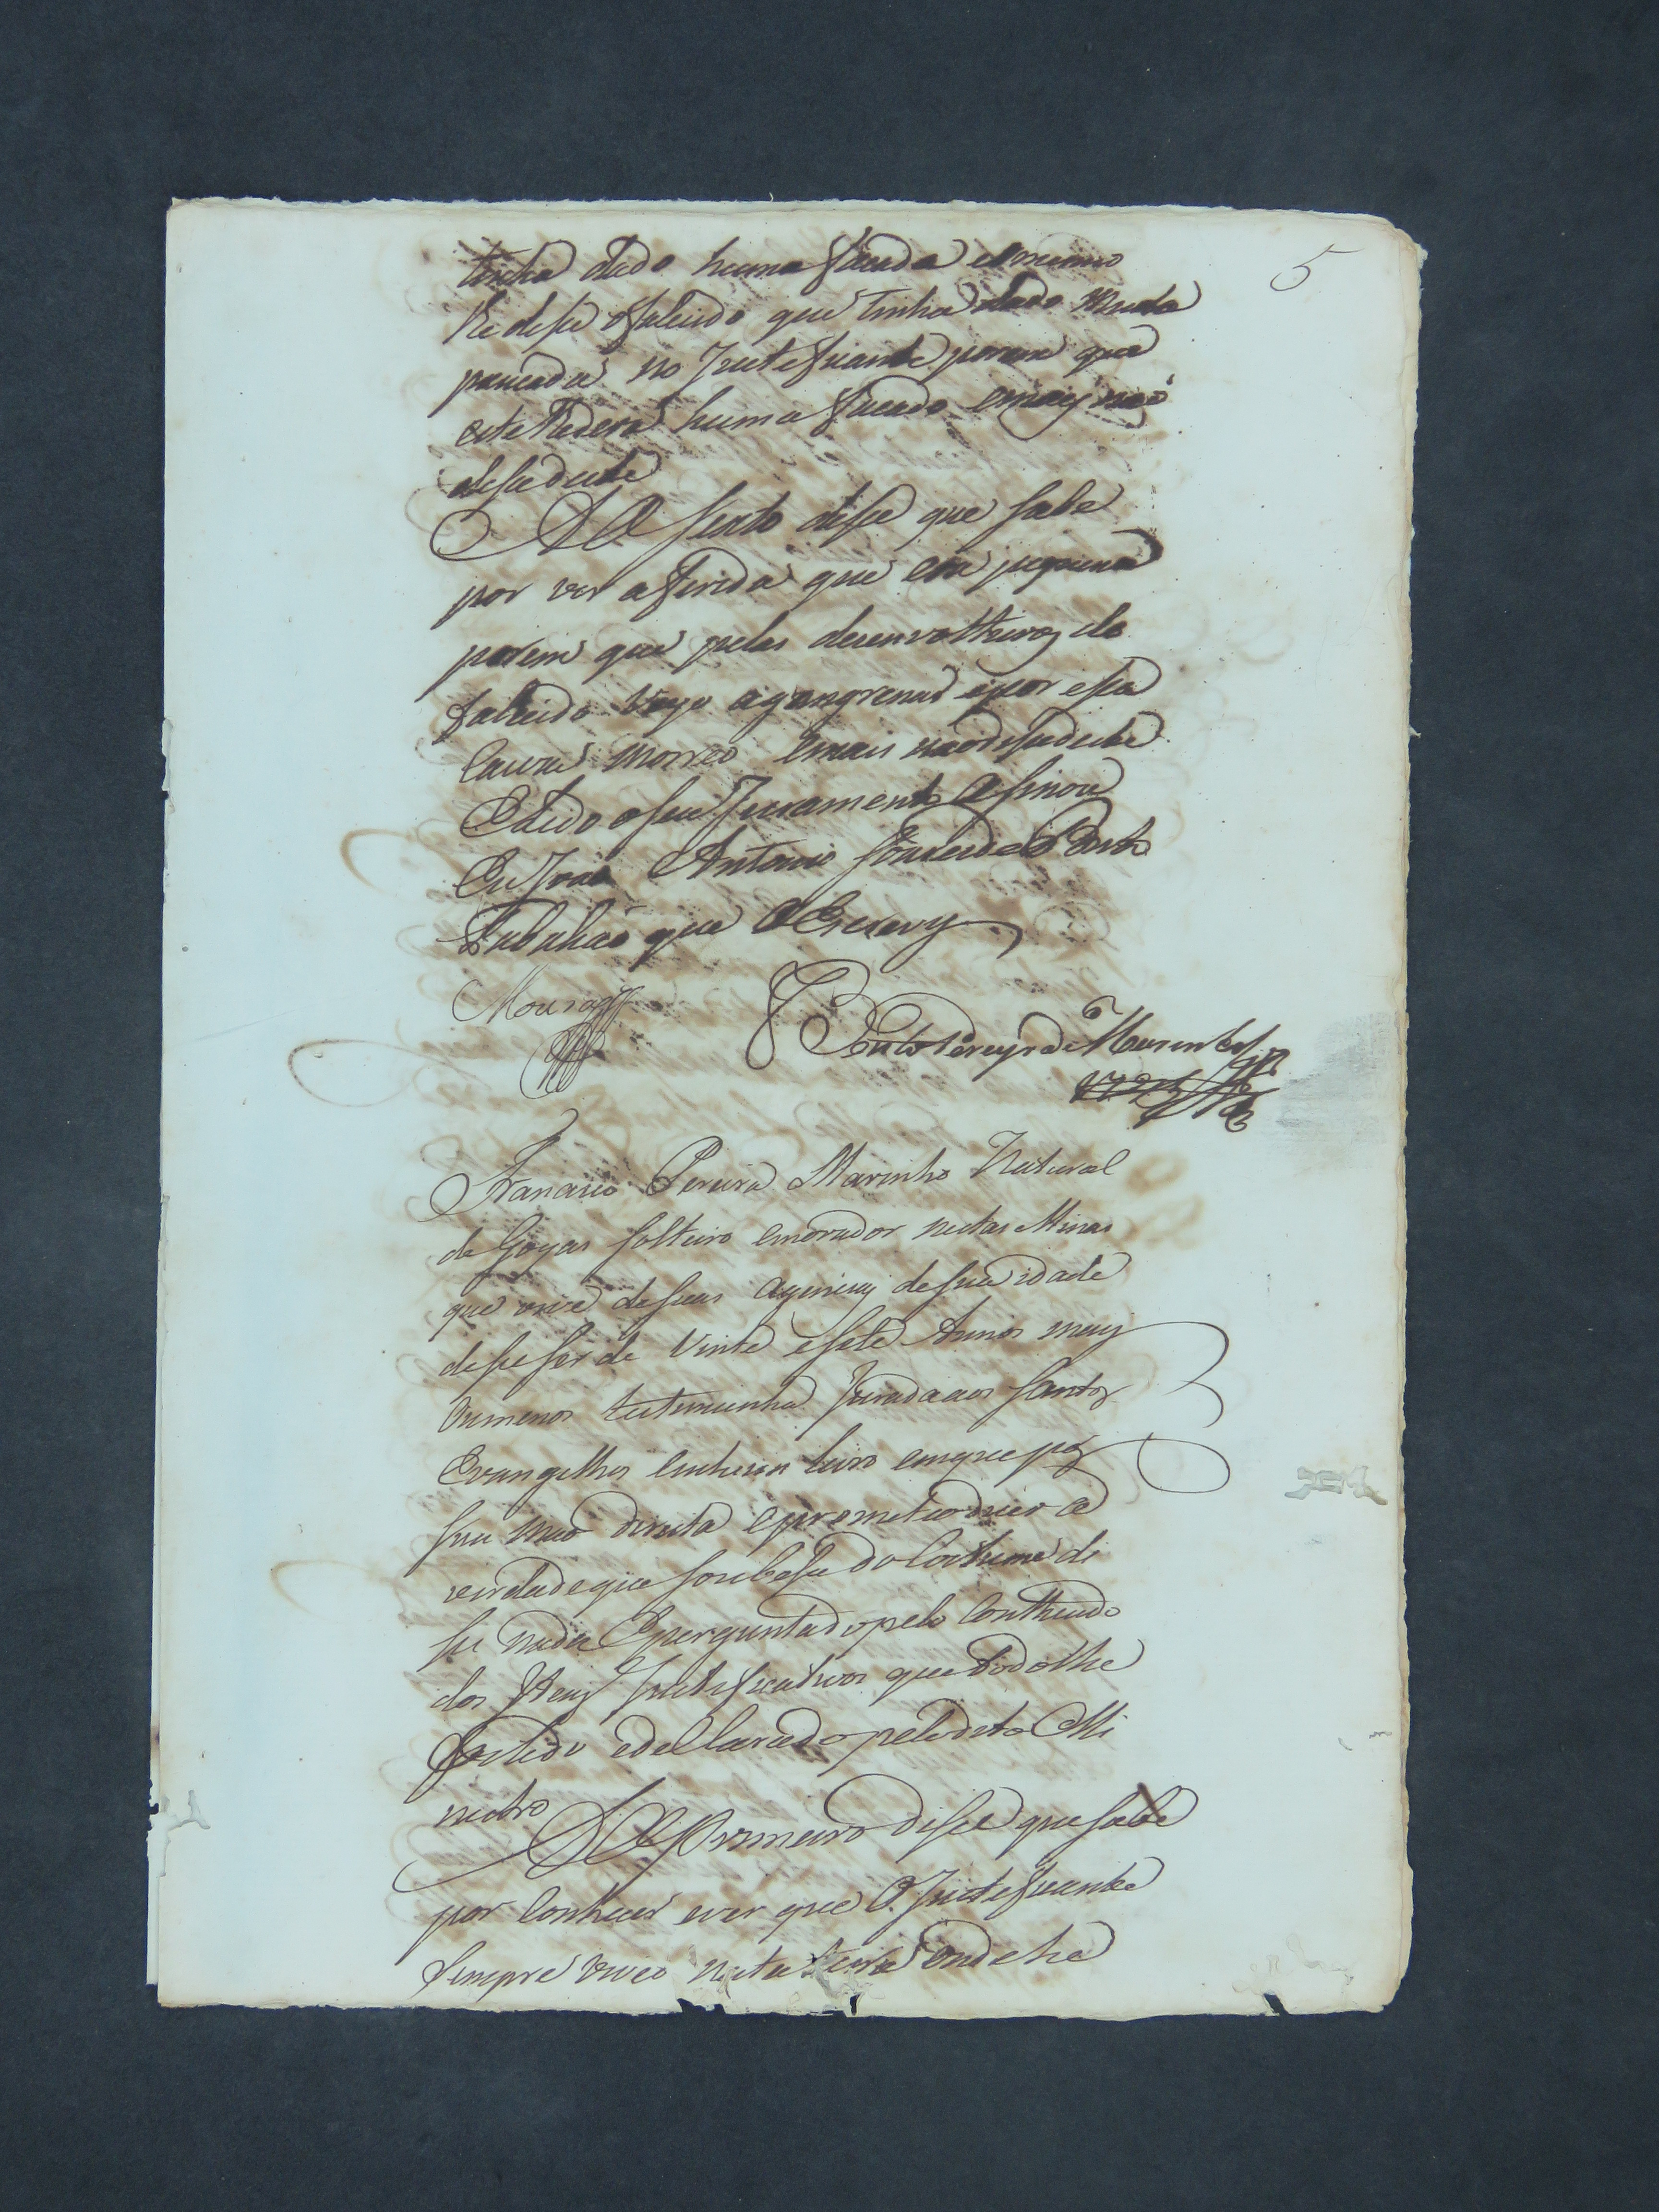 5
tinha dado huma facada e o mesmo
lhe disse o falecido que tinha dado muita
pancada no Justeficante porem que
este lhe dera huma facada e mais naõ
disse deste
Ao Sexto disse que sabe
por ver a firida que era piquena
porem que pelas desenvolturas do
falecido veyo agangrenar e por essa
cauza morreo e mais naõ disse deste
E lido o seu Juramento asinou
Eu Joaõ Antonio Pinto
Tabaliaõ que o Escrevy
Moura
Pinto Pereyra de
Francisco Pereira Marinho Natural
de Goyas solteiro e morador nestas Minas
que vive de suas agencias de sua idade
disse ser de Vinte e sete Annos mais
ou menos testemunha Jurada aos Santos
Evangelhos em hum livro em que pos
sua maõ direita e prometeo dizer a
verdade que soubesse do Costume di
se nada E perguntado pelo Contheudo
dos Itens Justificativos que todo lhe
foi lido e declarado pelo dito Mi
nistro
Ao Primeiro disse que sabe
por conhecer e ver que o Justeficante
sempre viveo nesta terra onde he